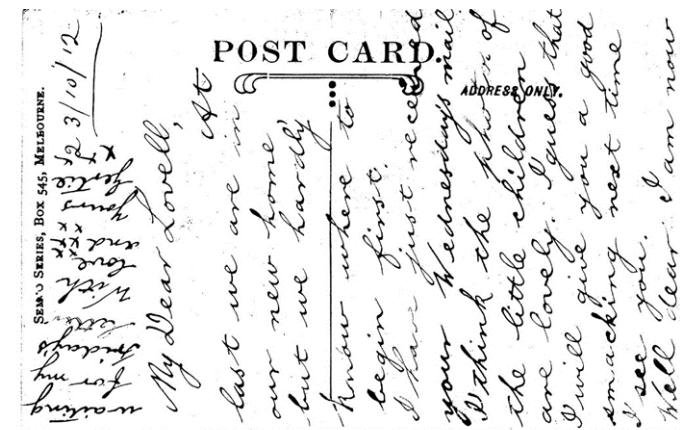 POST CARD.
ADDRESS ONLY.
SEMCO SERIES, BOX 545, MELBOURNE.
23/10/12
My Dear Lovell,
At
last we are in
our new home
but we hardly
know where to
begin first.
I have just received
your Wednesday's mail
I think the photos of
the little children
are lovely. I guess that
I will give you a good
smacking next time
I see you.
Well dear I am now
waiting
for my
Friday's
letter
With
love
and xxx
yours
Leslie
xx